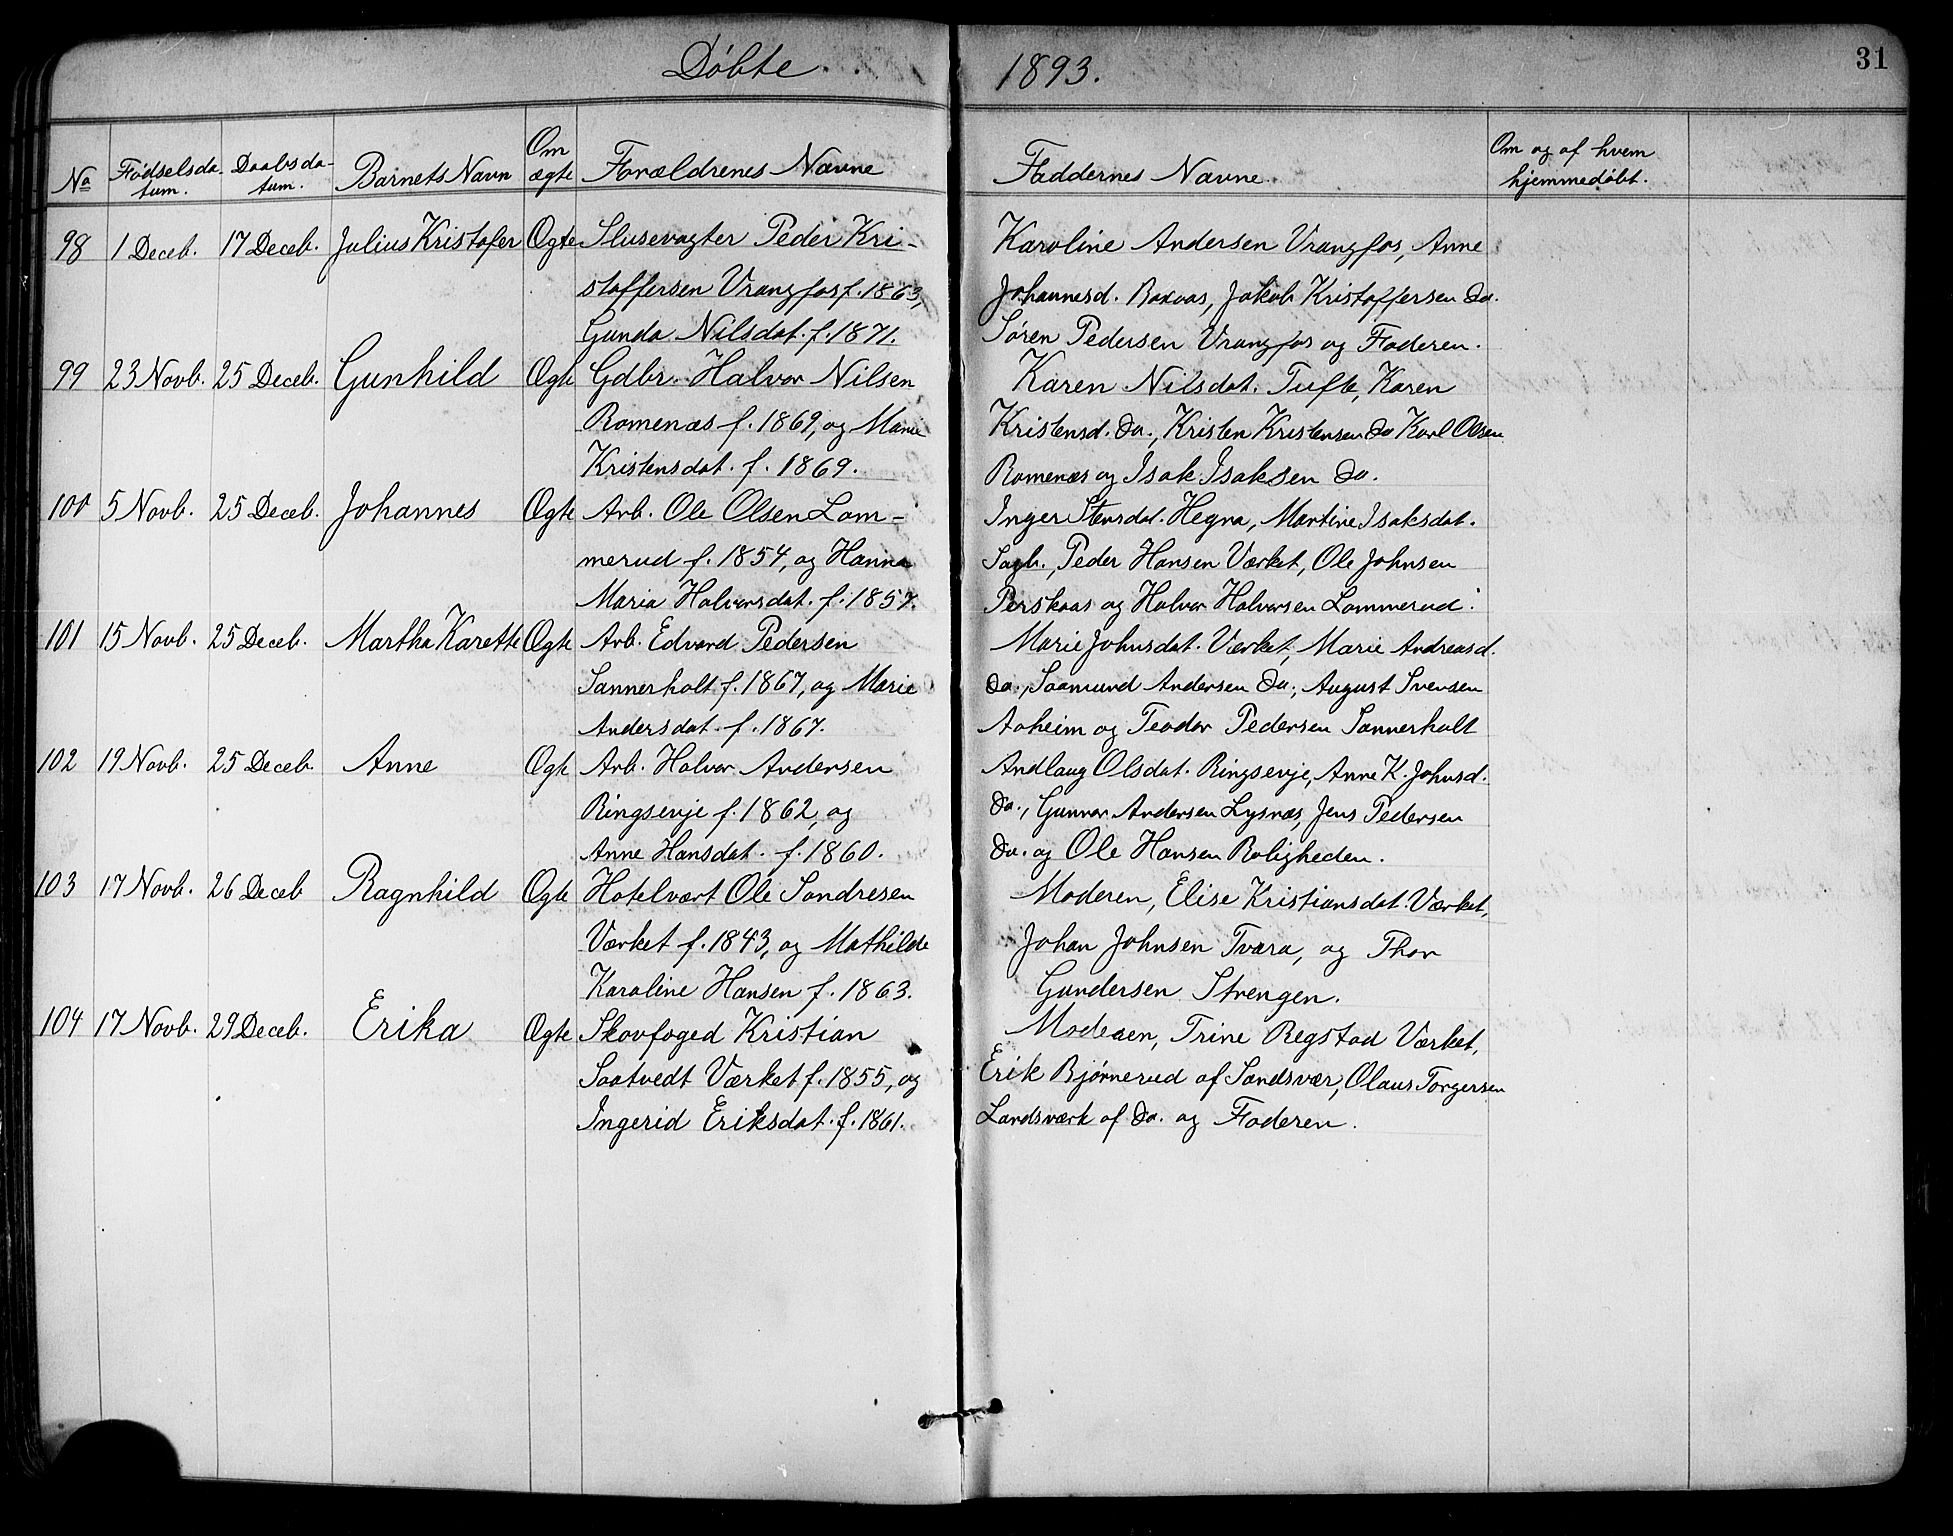 Døbte 1893.
31
No Fødselsdatum. Daabsdatum. Barnets Navn Om ægte Forældrenes Navne Faddernes Navne Om og af hvem hjemmedøbt.
98 1 Deceb. 17 Deceb. Julius Kristofer Ægte Slusevagter Peder Kri-
stoffersen Vrangfos f. 1863,
Gunda Nilsdat. f. 1871.
Karoline Andersen Vrangfos, Anne
Johannesd. Jakob Kristoffersen Do.
Søren Pedersen Vrangfos og Faderen.
99 23 Novb. 25 Deceb. Gunhild Ægte Gdbr. Halvor Nilsen
Romenæs f. 1869, og Maria
Kristensdat. f. 1869.
Karen Nilsdat. Tufte, Karen
Kristensd. Do., Kristen Kristensen Do Karl Olsen
Romenæs og Isak Isaksen Do.
100 5 Novb. 25 Deceb. Johannes Ægte Arb. Ole Olsen Lom-
merud f. 1854, og Hanna
Maria Halvorsdat. f. 1857.
Inger Stensdat. Hegna, Martine Isaksdat.
Sagb., Peder Hansen Værket, Ole Johnsen
Perskaas og Halvor Halvorsen Lommerud.
101 15 Novb. 25 Deceb. Martha Karette Ægte Arb. Edvard Pedersen
Sannerholt f. 1867, og Marie
Andersdat. f. 1867.
Marie Johnsdat. Værket, Marie Andreasd.
Do., Saamund Andersen Do., August Svensen
Aaheim og Teodor Pedersen Sannerholt
102 19 Novb. 25 Deceb. Anne Ægte Arb. Halvor Andersen
Ringsevje f. 1862, og
Anne Hansdat. f. 1860.
Andlaug Olsdat. Ringsevje, Anne K. Johnsd.
Do., Gunnar Andersen Lysnæs, Jens Pedersen
Do. og Ole Hansen Roligheden.
103 17 Novb. 26 Deceb Ragnhild Ægte Hotelvært Ole Sondresen
Værket f. 1843, og Mathilde
Karoline Hansen f. 1863.
Moderen, Elise Kristiansdat. Værket,
Johan Johnsen Tvara, og Thor
Gundersen Strengen.
104 17 Novb. 29 Deceb. Erika Ægte Skovfoged Kristian
Saatvedt Værket f. 1855, og
Ingerid Eriksdat. f. 1861.
Moderen, Trine Regstad Værket,
Erik Bjørnerud af Sandsvær, Olaus Torgersen
Landsværk af Do. og Faderen.